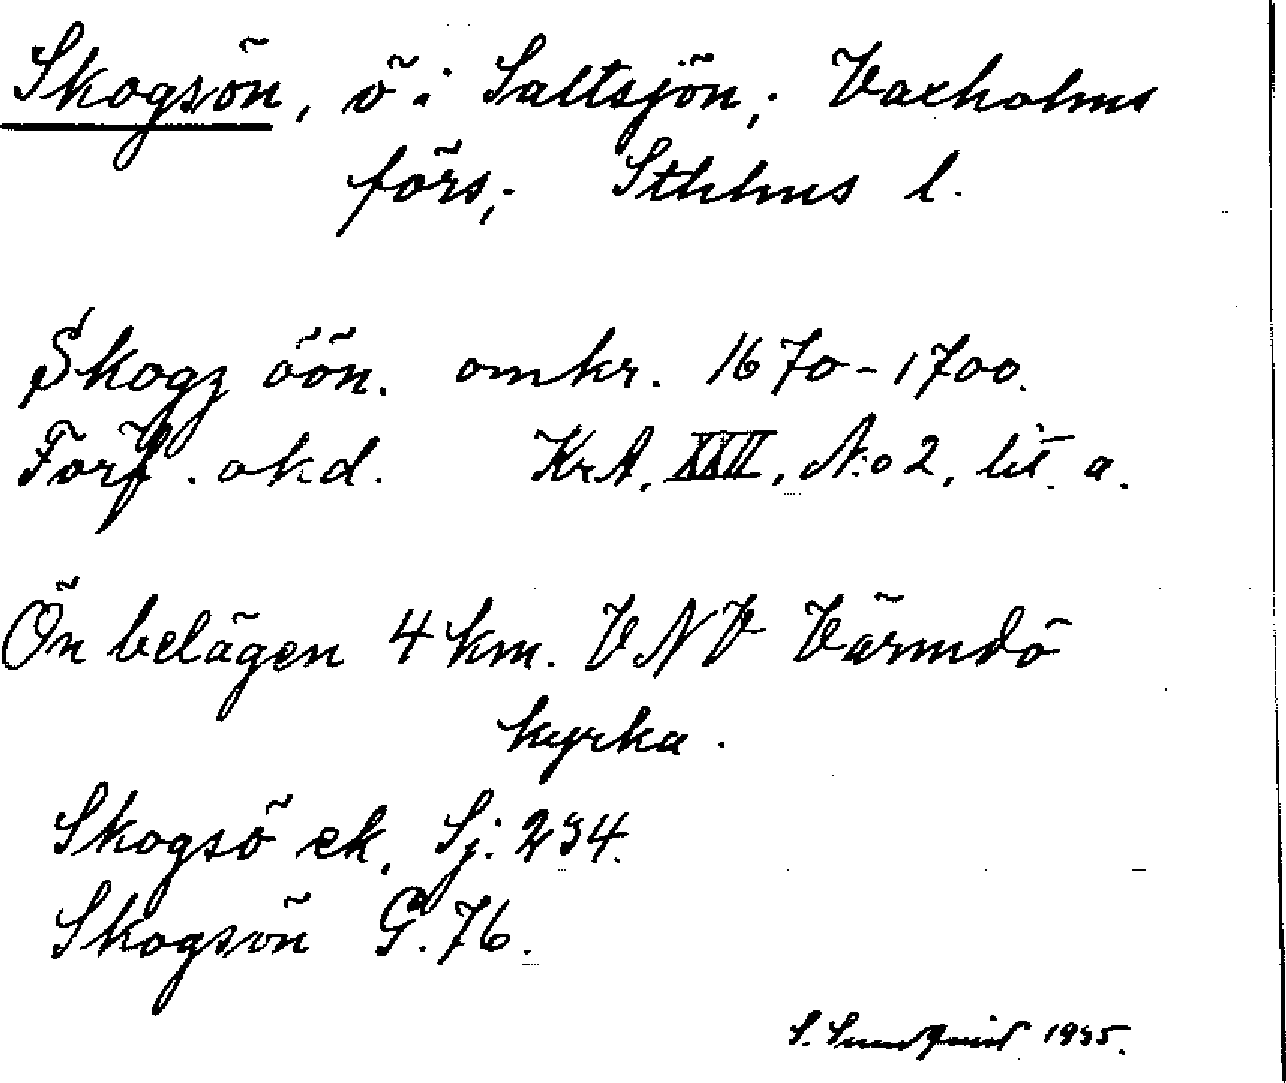 Skogsön, ö i Saltsjön; Vaxholms
förs; Sthlms l.
Skogz öön. omkr. 1670-1700.
Förf. okd. KrA, XXII, No 2, lit. a.
Ön belägen 4 km. VNV Värmdö
kyrka.
Skogsö ek. Sj: 234.
Skogsön G. 76.
S. Sundqvist 1935.